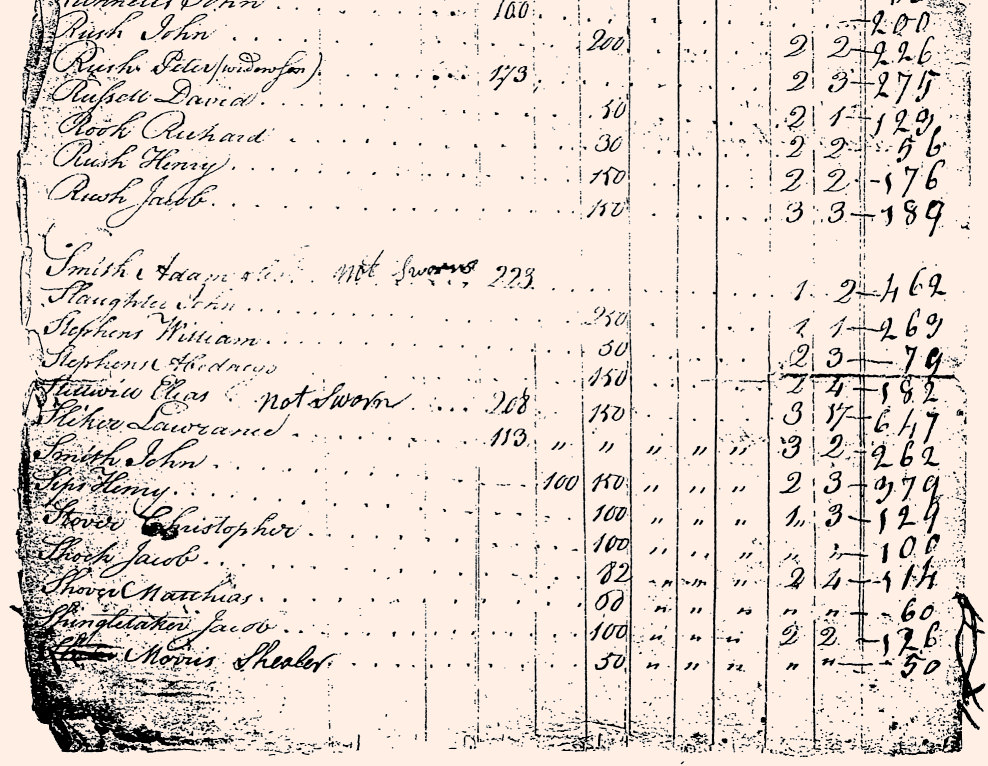 John 100 200
Rush John 200 2 2 226
Rush Peter (widows son) 173 2 3 275
Russell David 50 2 1 129
Rook Richard 30 2 2 56
Rush Henry 150 2 2 176
Rush Jacob 150 3 3 189
Smith Adam not Sworn 223 1 2 462
Slaughter John 250 1 1 263
Stephens William 50 2 3 79
Stephens Abednego 150 2 4 182
Elias not Sworn 208 150 3 17 647
Lawrance 113 " " " " " 3 2 262
Smith John 100 150 " " " 2 3 379
Sips Henry 100 " " " 1 3 129
Stover Christopher 100 " " " " " 100
Shock Jacob 82 " " " 2 4 114
Shover Matthias 60 " " " " " 60
Shingletaker Jacob 100 " " " 2 2 126
Morris Shealer 50 " " " " " 50